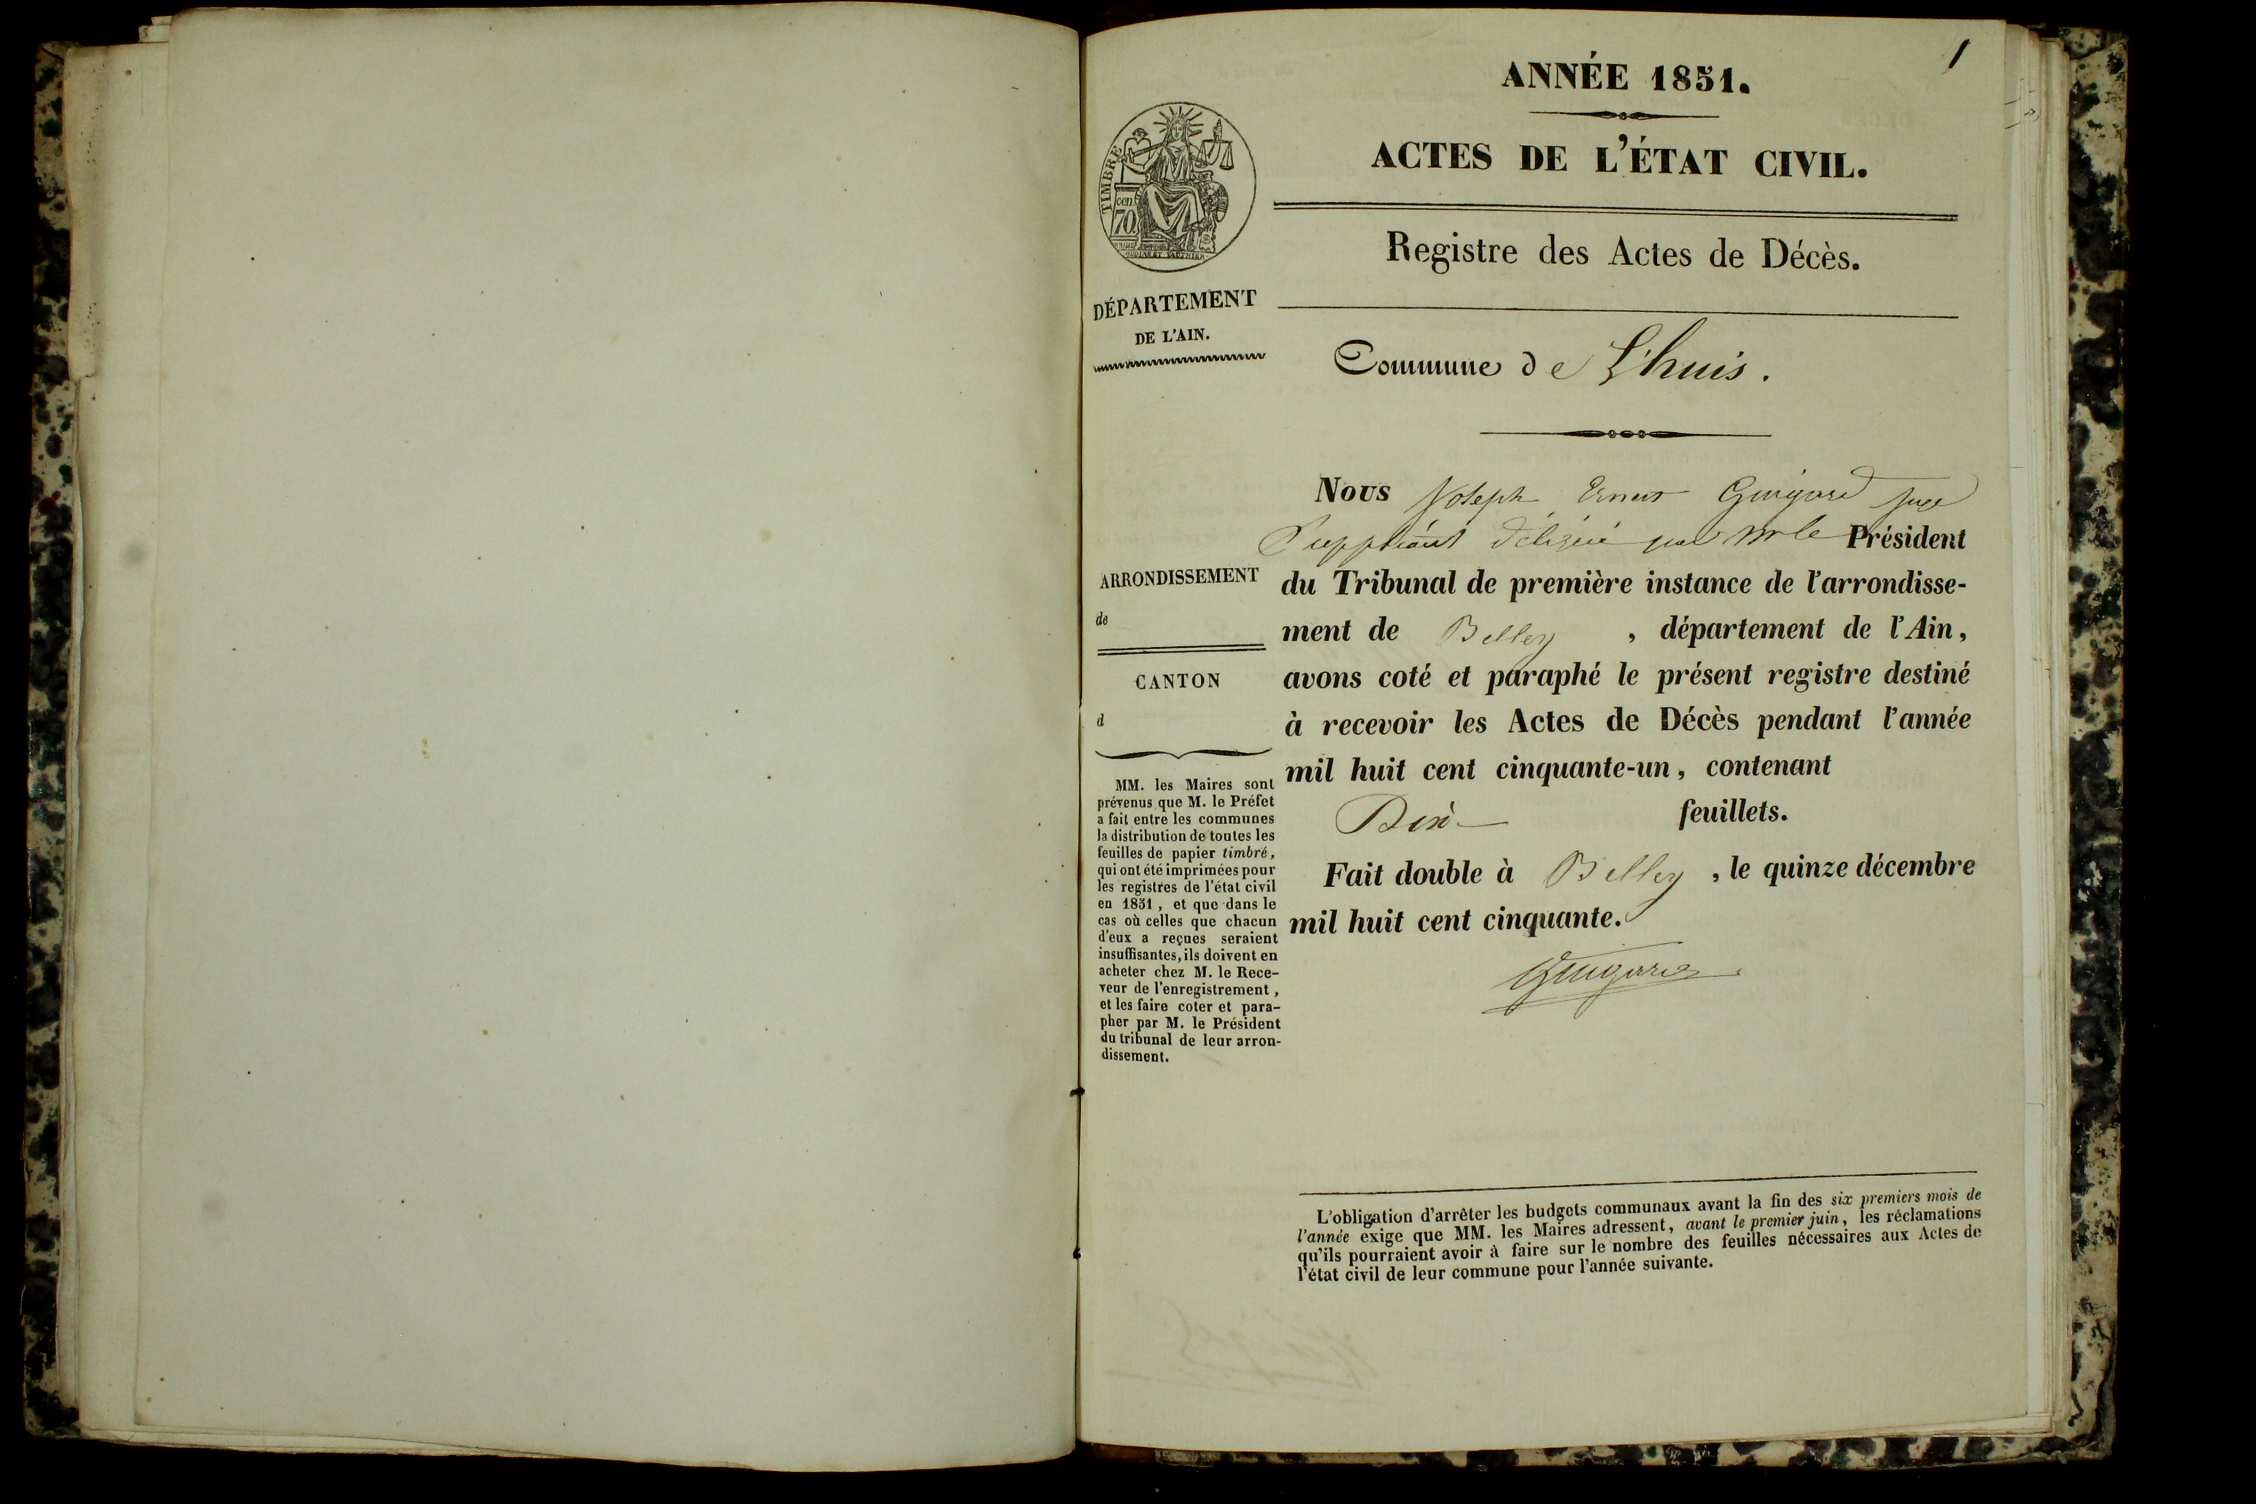 1
ANNÉE 1851.
ACTES DE L'ÉTAT CIVIL.
Registre des Actes de Décès.
TIMBRE
cen.
70.
DÉPARTEMENT
DE L'AIN.
Commune de L'huis.
Nous Joseph Ernest Guigard Juge
Suppléant délégué par Mr le Président
du Tribunal de première instance de l'arrondisse-
ment de Belley, département de l'Ain,
avons coté et paraphé le présent registre destiné
à recevoir les Actes de Décès pendant l'année
mil huit cent cinquante-un, contenant
Dix feuillets.
Fait double à Belley, le quinze décembre
mil huit cent cinquante.
Guigard
ARRONDISSEMENT
de
CANTON
d
MM. les Maires sont
prévenus que M. le Préfet
a fait entre les communes
la distribution de toutes les
feuilles de papier timbré,
qui ont été imprimées pour
les registres de l'état civil
en 1851, et que dans le
cas où celles que chacun
d'eux a reçues seraient
insuffisantes, ils doivent en
acheter chez M. le Rece-
veur de l'enregistrement,
et les faire coter et para-
pher par M. le Président
du tribunal de leur arron-
dissement.
L'obligation d'arrêter les budgets communaux avant la fin des six premiers mois de
l'année exige que MM. les Maires adressent, avant le premier juin, les réclamations
qu'ils pourraient avoir à faire sur le nombre des feuilles nécessaires aux Actes de
l'état civil de leur commune pour l'année suivante.